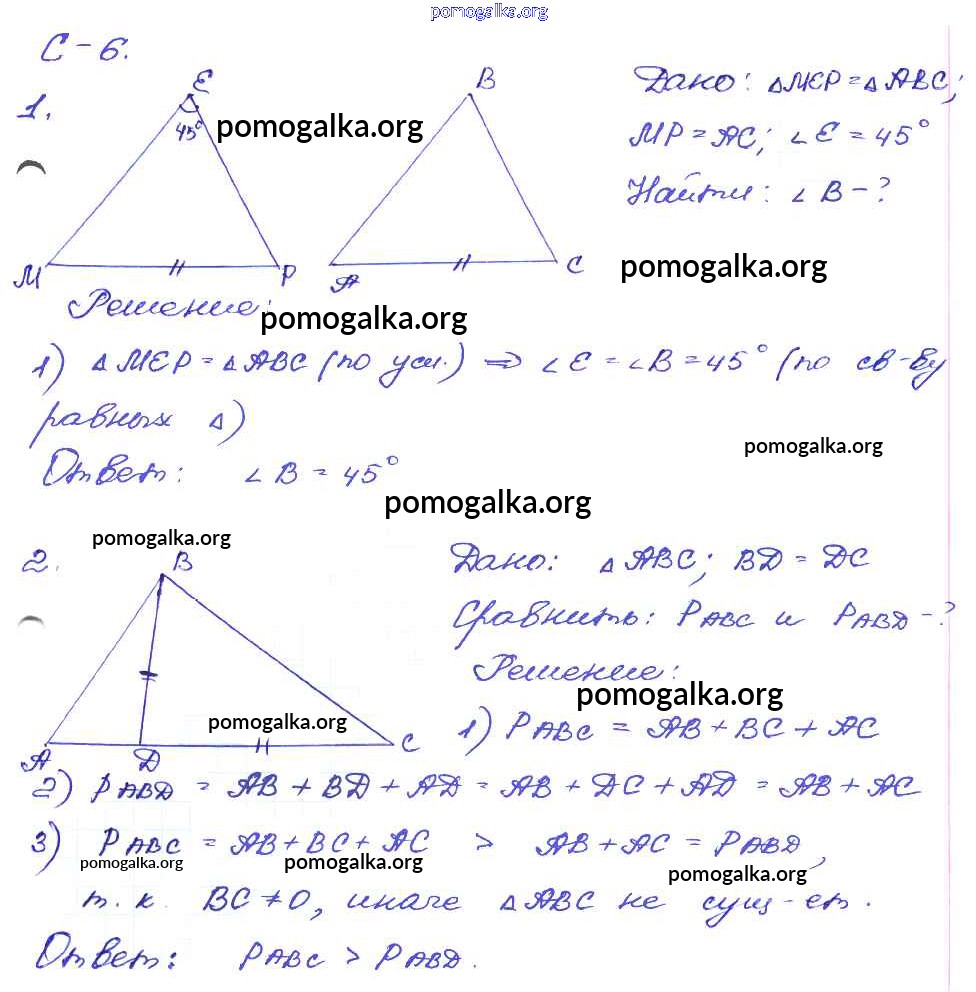 pomogalka.org
С-6.
1.
E
45°
M
P
B
A
C
pomogalka.org
Дано: △MEP = △ABC;
MP = AC; ∠E = 45°
Найти: ∠B - ?
pomogalka.org
Решение:
pomogalka.org
1) △MEP = △ABC (по усл.) ⇒ ∠E = ∠B = 45° (по св-ву
равных △)
pomogalka.org
Ответ: ∠B = 45°
pomogalka.org
pomogalka.org
2.
B
A
D
C
Дано: △ABC; BD = DC
Сравнить: PABC и PABD - ?
Решение:
pomogalka.org
pomogalka.org
1) PABC = AB + BC + AC
2) PABD = AB + BD + AD = AB + DC + AD = AB + AC
3) PABC = AB + BC + AC > AB + AC = PABD,
pomogalka.org
pomogalka.org
pomogalka.org
т. к. BC ≠ 0, иначе △ABC не сущ-ет.
Ответ: PABC > PABD.